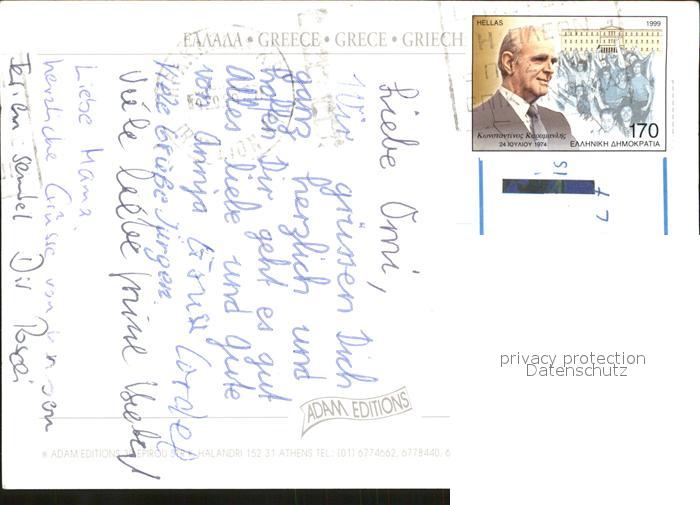 ΕΛΛΑΔΑ • GREECE • GRÈCE • GRIECH
HELLAS 1999
Κωνσταντίνος Καραμανλής
24 ΙΟΥΛΙΟΥ 1974
170
ΕΛΛΗΝΙΚΗ ΔΗΜΟΚΡΑΤΙΑ
Liebe Omi,
Wir grüssen Dich
ganz herzlich und
hoffen Dir geht es gut
Alles liebe und gute
von Annja
Viele Grüße Jürgen.
Viele liebe
Liebe Mama,
herzliche Grüße von
Ferien sendet Dir
ADAM EDITIONS
privacy protection
Datenschutz
ADAM EDITIONS HALANDRI 152 31 ATHENS TEL.: (01) 6774662, 6778440, 6